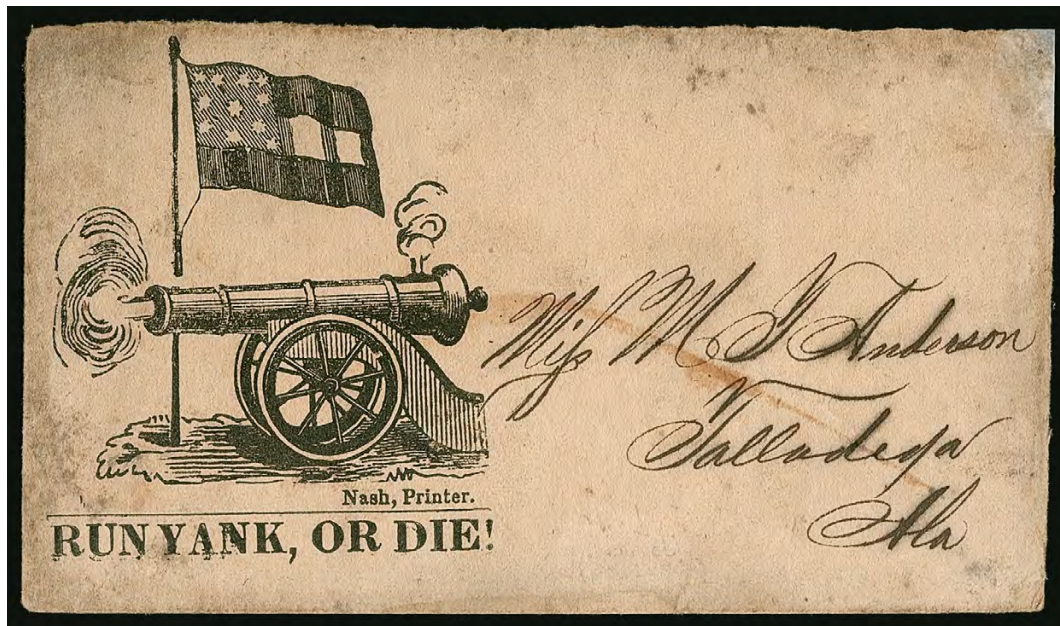 Nash, Printer.
RUN YANK, OR DIE!
Miſs M J Anderson
Talladega
Ala